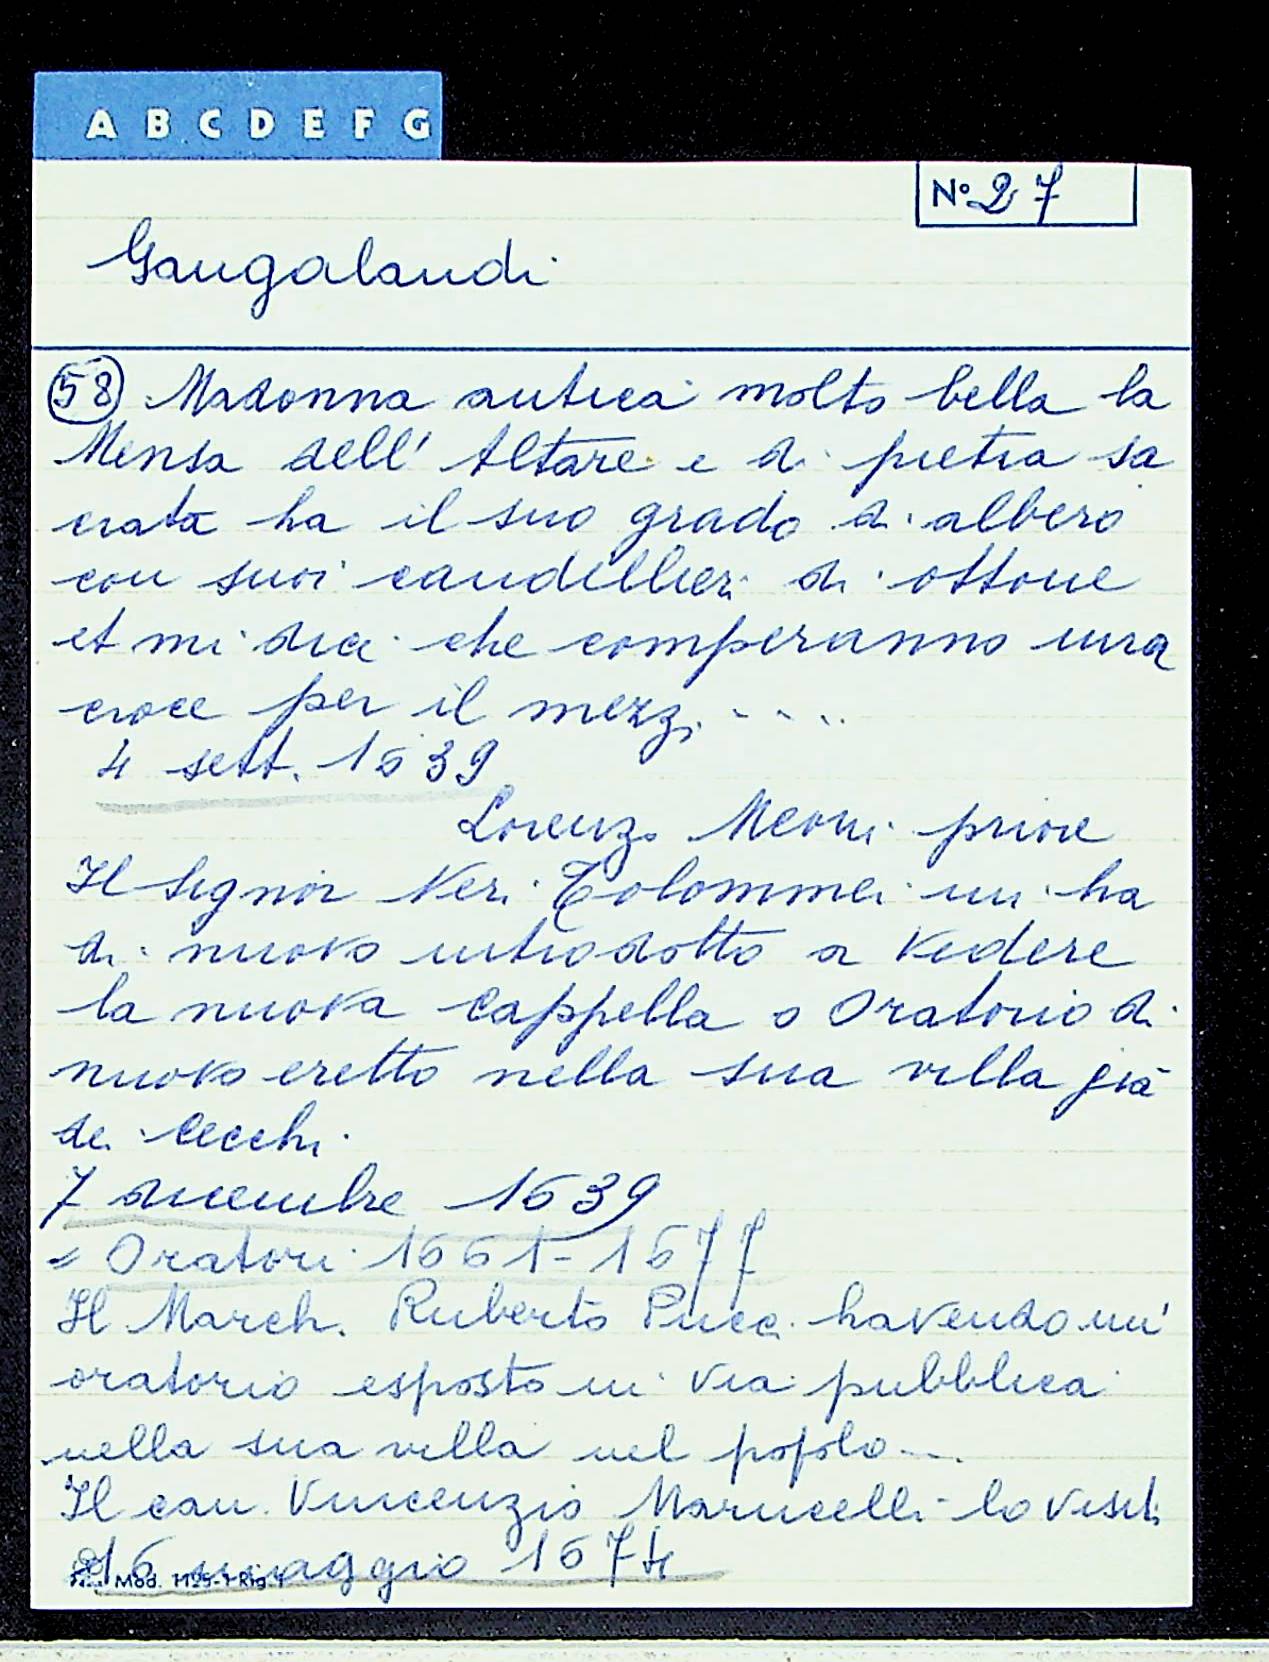 A B C D E F G
N° 27
Gangalandi
58 Madonna antica molto bella la
Mensa dell' Altare e di pietra sa
crata ha il suo grado di albero
con suoi candellieri di ottone
et mi dice che comperanno una
croce per il mezzo ....
4 sett. 1639
Lorenzo Meoni priore
Il Signor Neri Tolommei mi ha
di nuovo introdotto a vedere
la nuova Cappella o Oratorio di
nuovo eretto nella sua villa già
de Cecchi
7 dicembre 1639
= Oratori 1661-1677
Il March. Ruberto Pucci havendo un'
oratorio esposto in via pubblica
nella sua villa nel popolo ...
Il can. Vincenzio Marucelli lo visitò
16 maggio 1674
Mod. 1125-1 Rig.